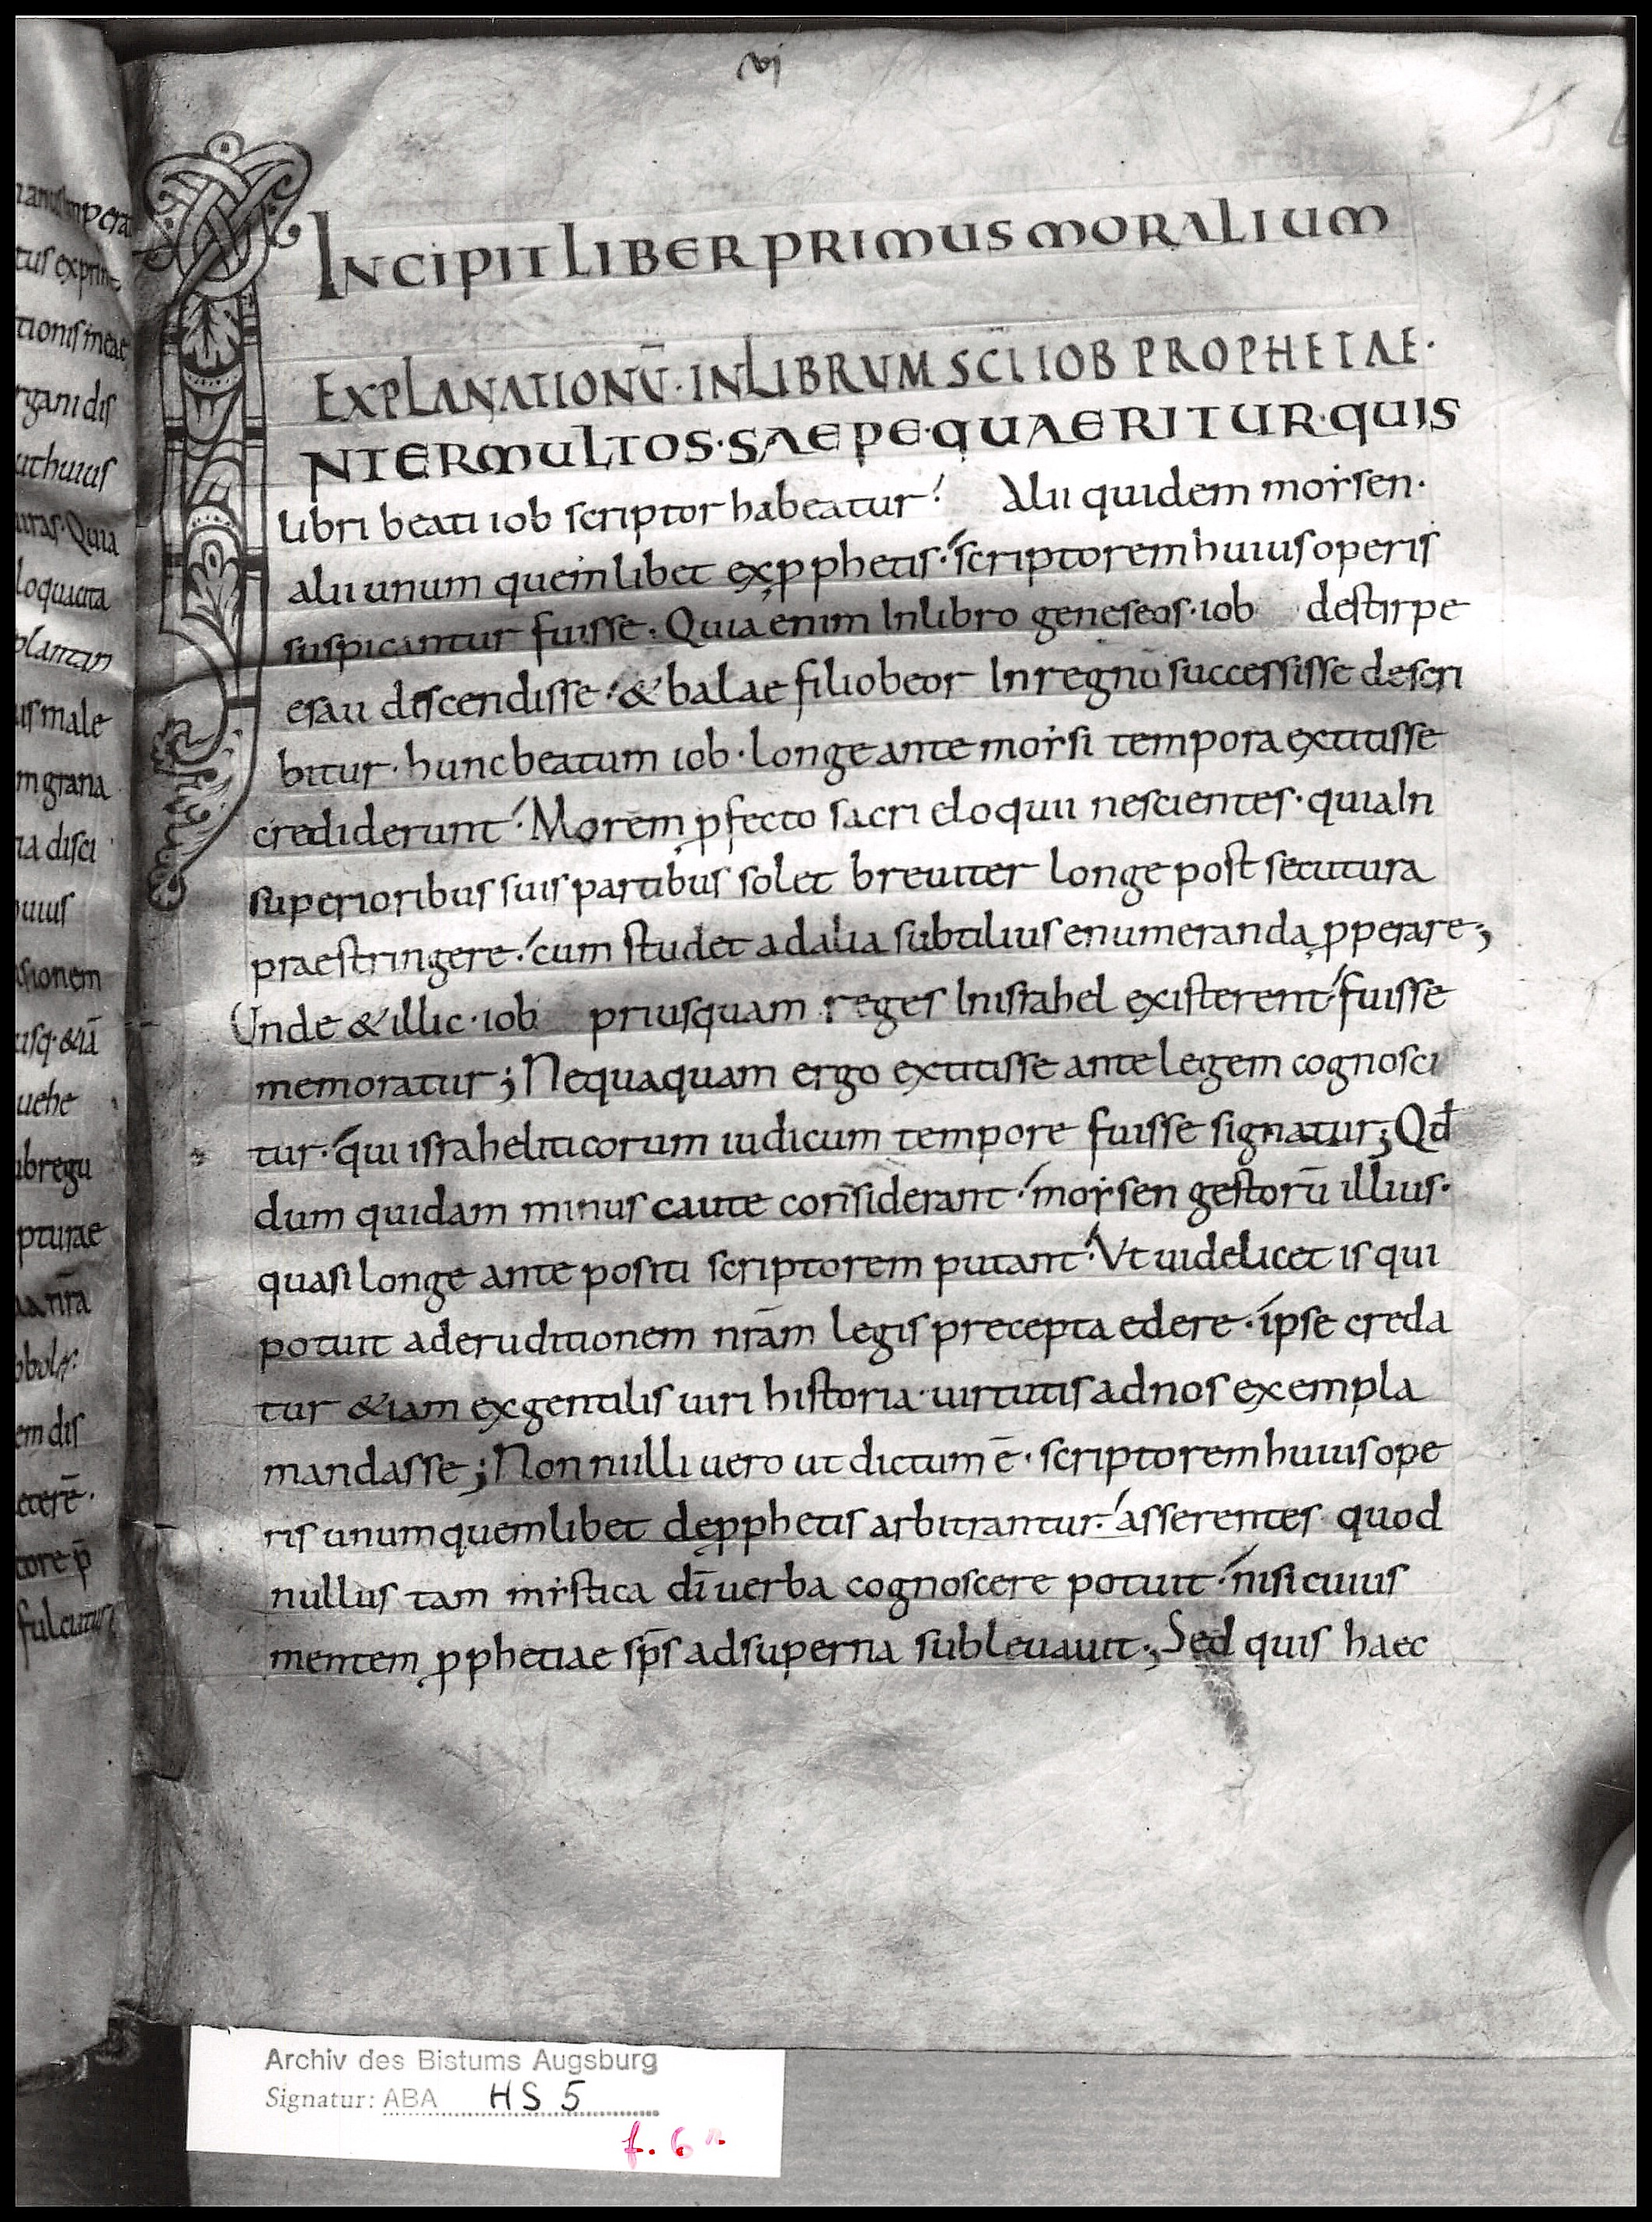 vi
INCIPIT LIBER PRIMUS MORALIUM
EXPLANATIONŪ · IN LIBRVM SC̄I IOB PROPHETAE ·
INTER MULTOS · SAEPE · QUAERITUR · QUIS
libri beati iob scriptor habeatur? Alii quidem moẏsen ·
alii unum quemlibet ex ꝓphetis · scriptorem huius operis
suspicantur fuisse · Quia enim In libro geneseos · iob de stirpe
esau discendisse · & balae filio beor In regnū successisse descri
bitur · hunc beatum iob · longe ante moẏsi tempora extitisse
crediderunt · Morem ꝓfecto sacri eloquii nescientes · quia In
superioribus suis partibus solet breuiter longe post secutura
praestringere · cum studet ad alia subtilius enumeranda ꝓperare ;
Unde & illic · iob priusquam reges In israhel existerent · fuisse
memoratur ; Nequaquam ergo extitisse ante legem cognosci
tur · qui israheliticorum iudicum tempore fuisse signatur ; Qd̄
dum quidam minus caute considerant · moẏsen gestorū illius ·
quasi longe ante positi scriptorem putant · Vt uidelicet is qui
potuit ad eruditionem nr̄am legis precepta edere · ipse creda
tur &iam ex gentilis uiri historia · uirtutis ad nos exempla
mandasse ; Non nulli uero ut dictum ē · scriptorem huius ope
ris unum quemlibet de ꝓphetis arbitrantur · asserentes quod
nullus tam mẏstica dī uerba cognoscere potuit · nisi cuius
mentem ꝓphetiae sp̄s ad superna subleuauit ; Sed quis haec
tus exprim
tionis meae
rgani dis
ut huius
uras · Quia
loquacita
plantan
us male
m grana
ia disci
uius
sionem
usq · &iā
uehe
pturae
a nr̄a
em dis
tore p̄
Archiv des Bistums Augsburg
Signatur: ABA HS 5
f. 6 r